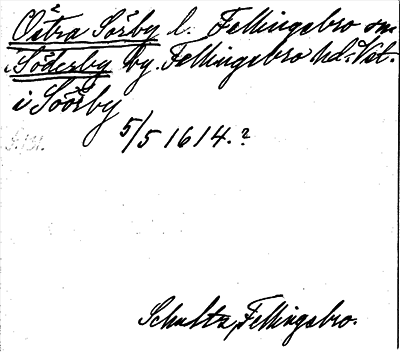 Östra Sörby l. Fellingsbro sn
i Söderby by. Fellingsbro hd. Vst.
i Söörby
5/5 1614.?
Schultz, Fellingsbro.